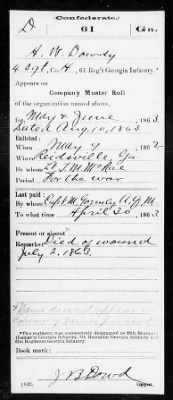 Confederate.
D 61 Ga.
A. W. Dowdy
4 Sgt, Co. H, 61 Reg't Georgia Infantry.
Appears on
Company Muster Roll
of the organization named above,
for May & June 1863.
Dated Aug. 10, 1863
Enlisted:
When May 9 1862
Where Reidsville, Ga
By whom Lt. J. M. McRae
Period For the war
Last paid:
By whom Capt. M. A. Q. M.
To what time April 30 1863
Present or absent
Remarks: Died of wound
July 2, 1863.
Book mark:
J B Dowd
(642) Copyist.